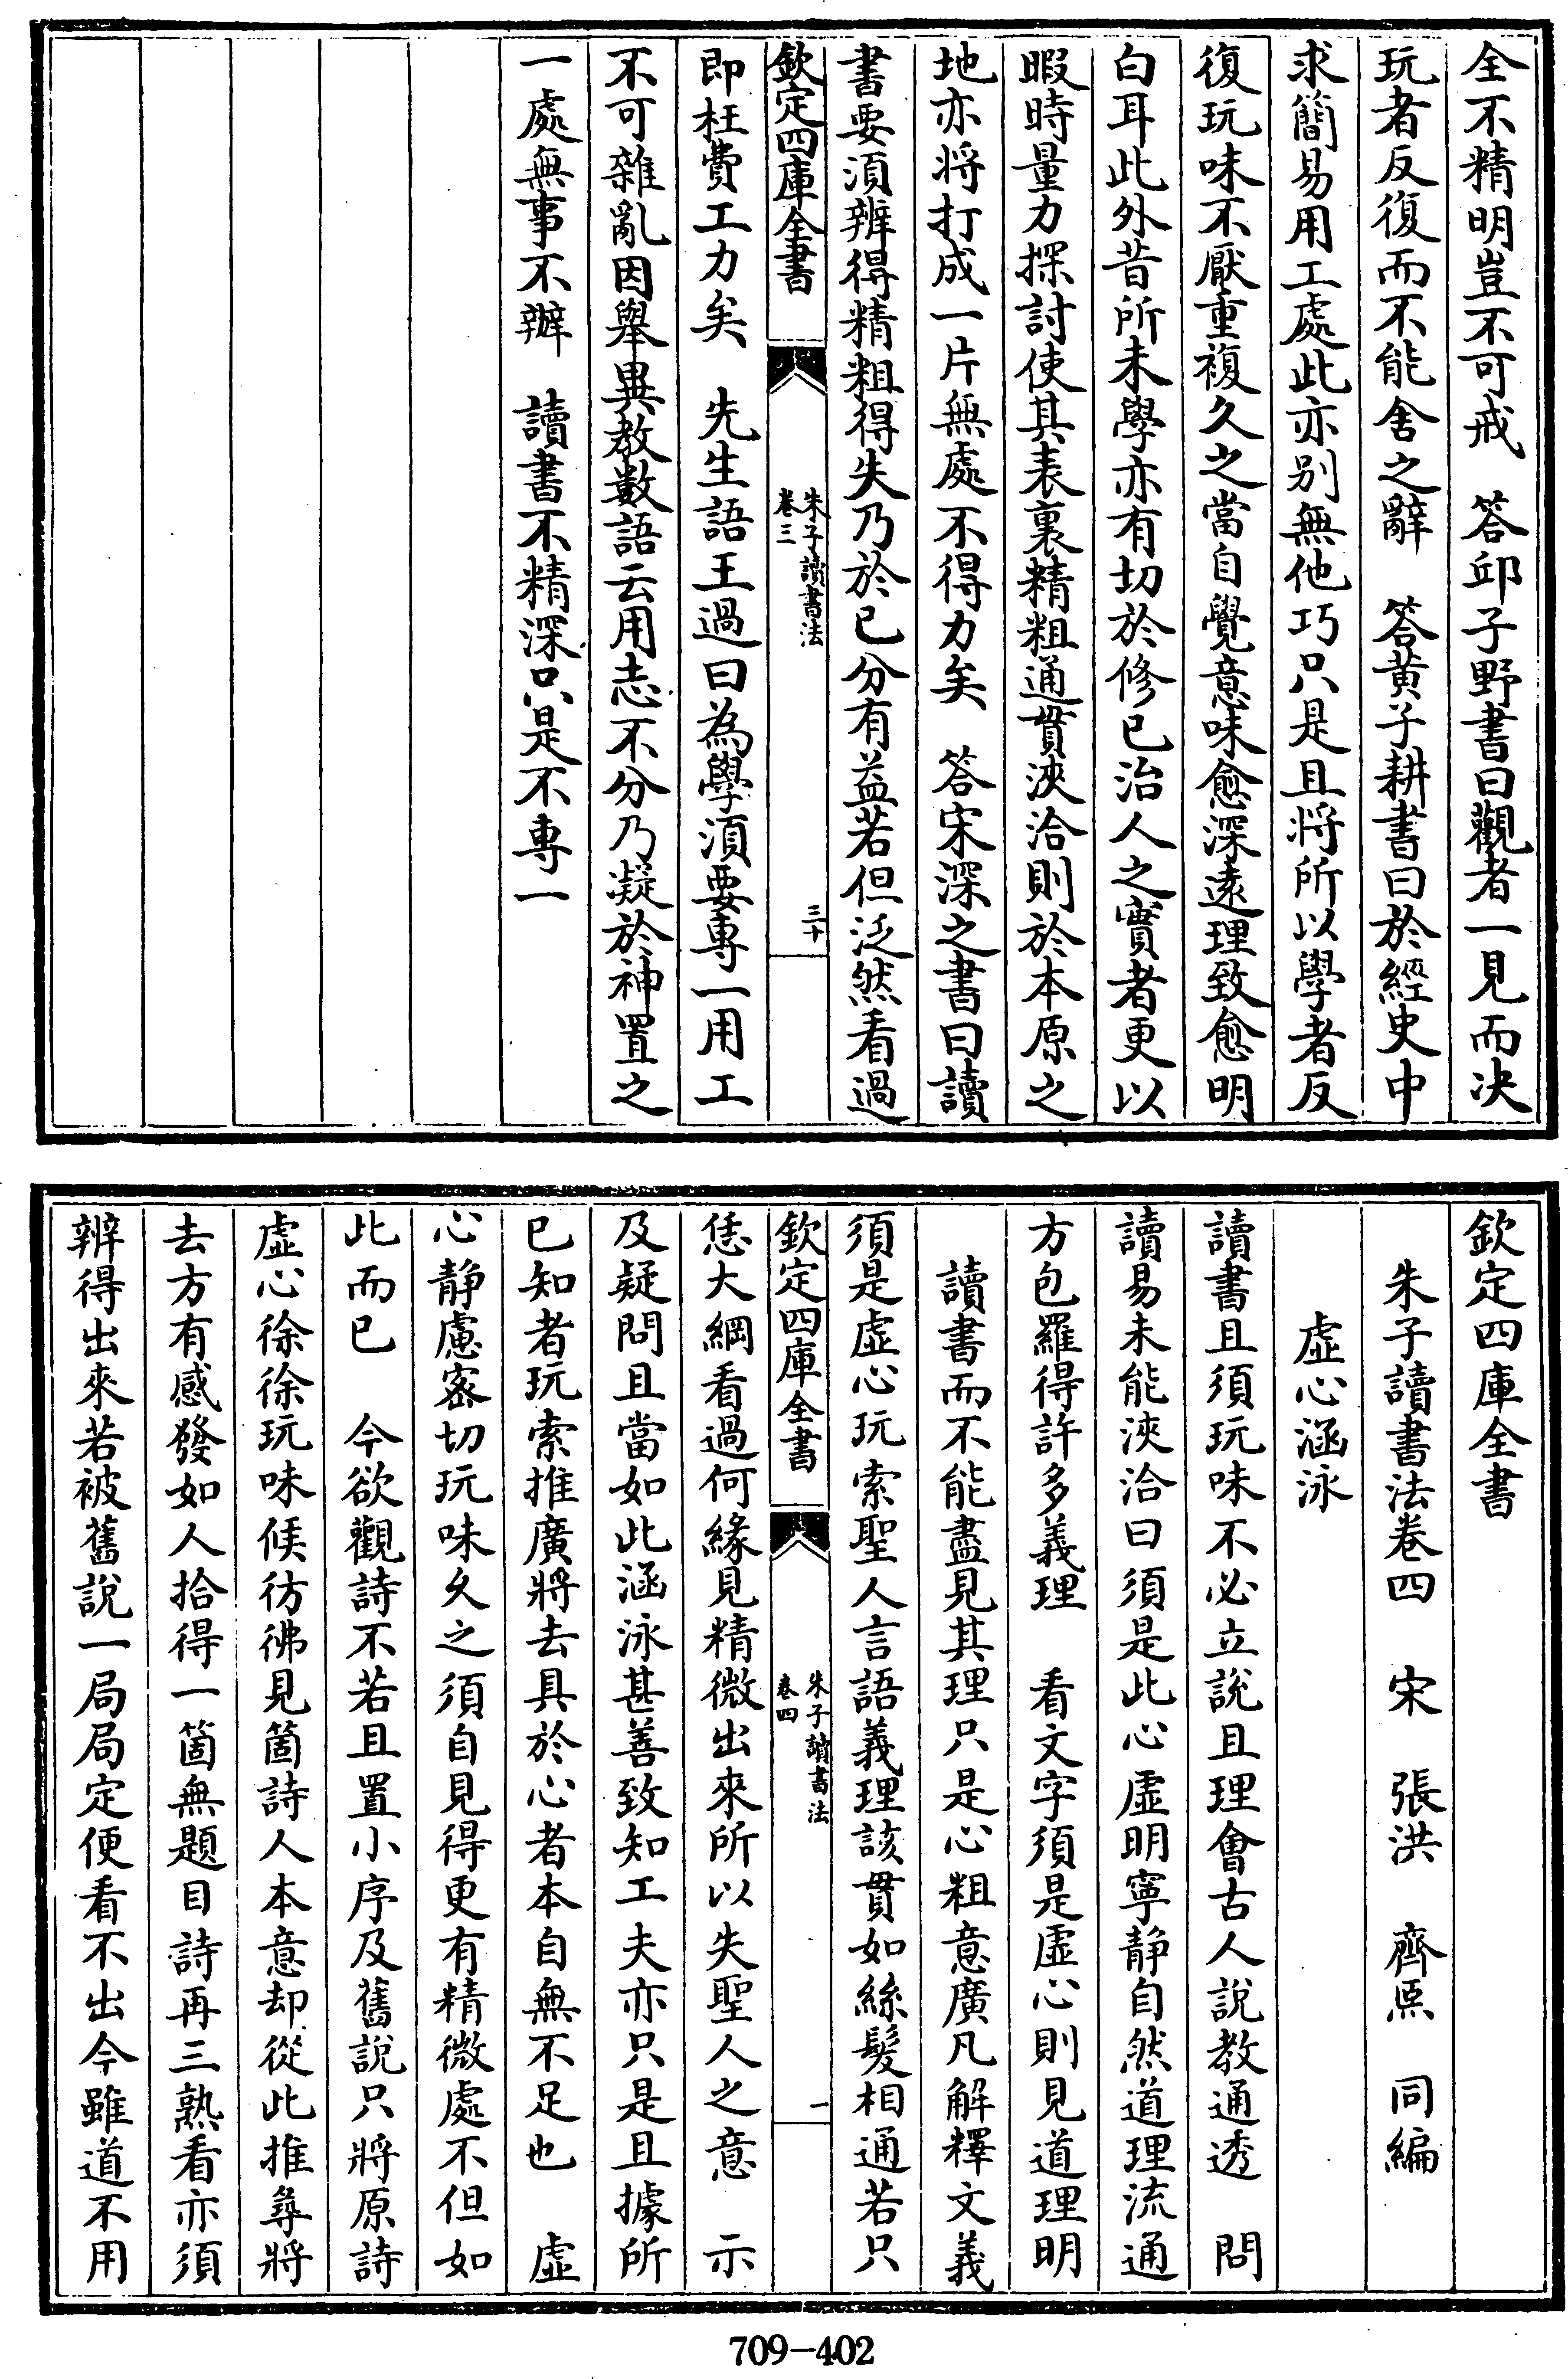 全不精明豈不可戒　答邱子野書曰觀者一見而决
玩者反復而不能舍之辭　答黄子耕書曰於經史中
求簡易用工處此亦别無他巧只是且将所以學者反
復玩味不厭重複久之當自覺意味愈深遠理致愈明
白耳此外昔所未學亦有切於修已治人之實者更以
暇時量力探討使其表裏精粗通貫浹洽則於本原之
地亦将打成一片無處不得力矣　答宋深之書曰讀
書要須辨得精粗得失乃於已分有益若但泛然看過
欽定四庫全書
朱子讀書法
卷三
三十
即枉費工力矣　先生語王過曰為學須要專一用工
不可雜亂因舉異教數語云用志不分乃凝於神置之
一處無事不辦　讀書不精深只是不專一
欽定四庫全書
朱子讀書法卷四　宋　張洪　齊熙　同編
虚心涵泳
讀書且須玩味不必立說且理會古人說教通透　問
讀易未能浹洽曰須是此心虚明寧静自然道理流通
方包羅得許多義理　看文字須是虚心則見道理明
讀書而不能盡見其理只是心粗意廣凡解釋文義
須是虚心玩索聖人言語義理該貫如絲髮相通若只
欽定四庫全書
朱子讀書法
卷四
一
恁大綱看過何緣見精微出來所以失聖人之意　示
及疑問且當如此涵泳甚善致知工夫亦只是且據所
已知者玩索推廣將去具於心者本自無不足也　虚
心静慮宻切玩味久之須自見得更有精微處不但如
此而已　今欲觀詩不若且置小序及舊說只將原詩
虚心徐徐玩味候彷彿見箇詩人本意却從此推尋將
去方有感發如人拾得一箇無題目詩再三熟看亦須
辨得出來若被舊說一局局定便看不出今雖道不用
709-402